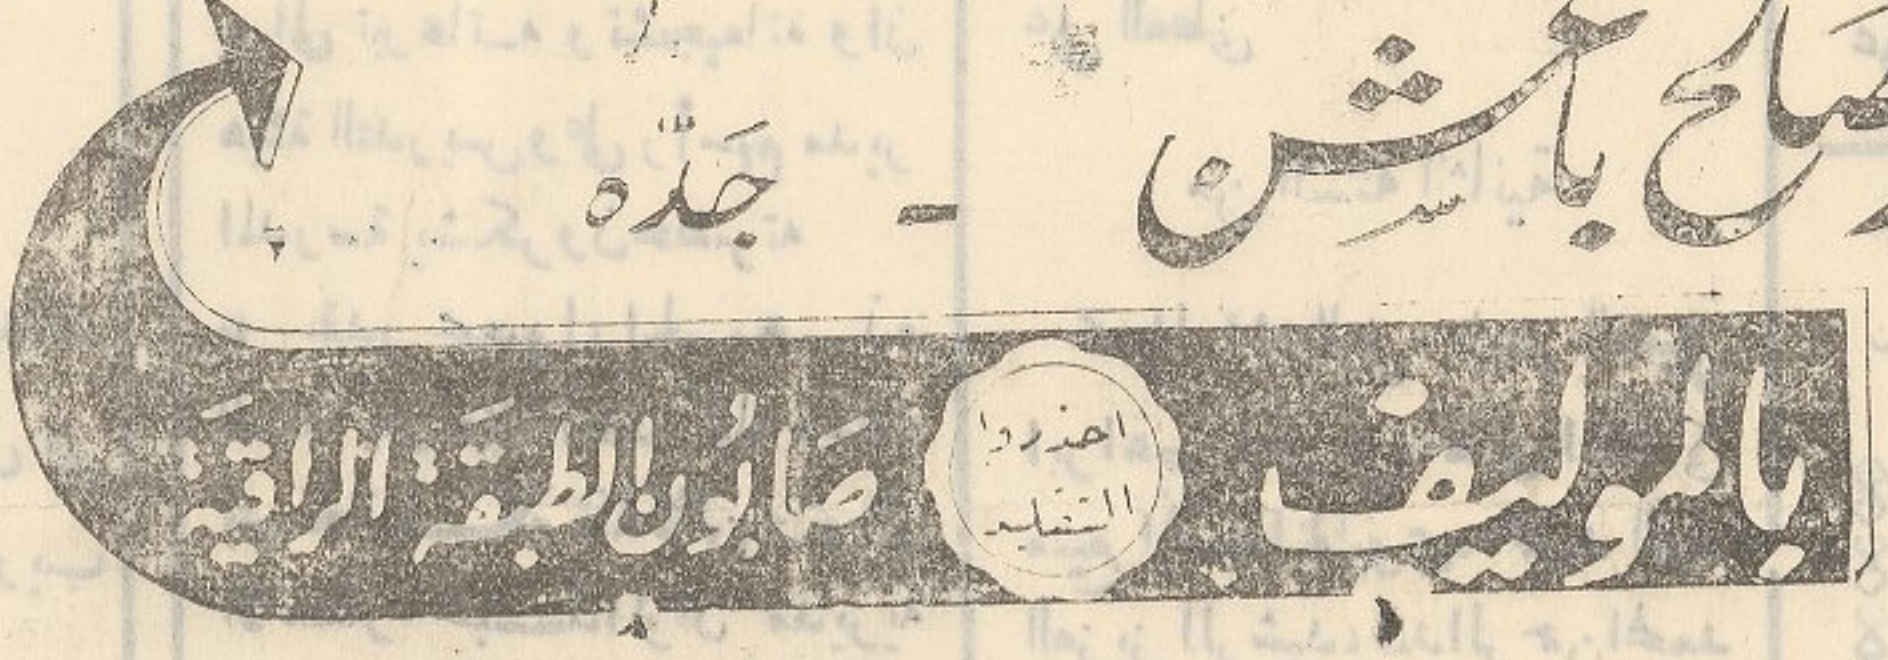 صالح باعشن - جدّه
بالموليف
احذروا
التقليد
صابون الطبقة الراقية